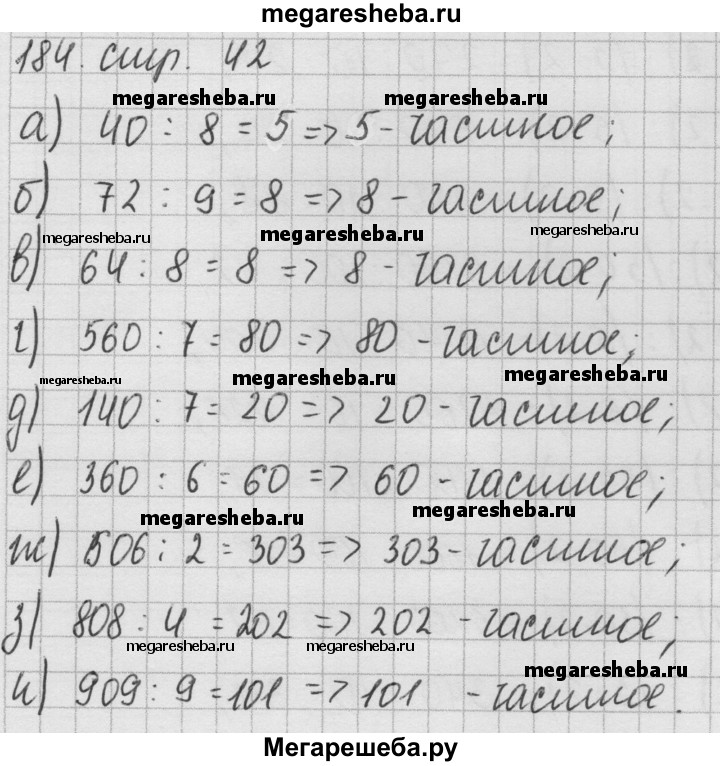 megaresheba.ru
184. стр. 42
megaresheba.ru megaresheba.ru
а) 40 : 8 = 5 => 5 - частное;
б) 72 : 9 = 8 => 8 - частное;
megaresheba.ru megaresheba.ru megaresheba.ru
в) 64 : 8 = 8 => 8 - частное;
г) 560 : 7 = 80 => 80 - частное;
megaresheba.ru megaresheba.ru megaresheba.ru
д) 140 : 7 = 20 => 20 - частное;
е) 360 : 6 = 60 => 60 - частное;
megaresheba.ru megaresheba.ru
ж) 506 : 2 = 303 => 303 - частное;
з) 808 : 4 = 202 => 202 - частное;
megaresheba.ru megaresheba.ru megaresheba.ru
и) 909 : 9 = 101 => 101 - частное.
Мегарешеба.ру